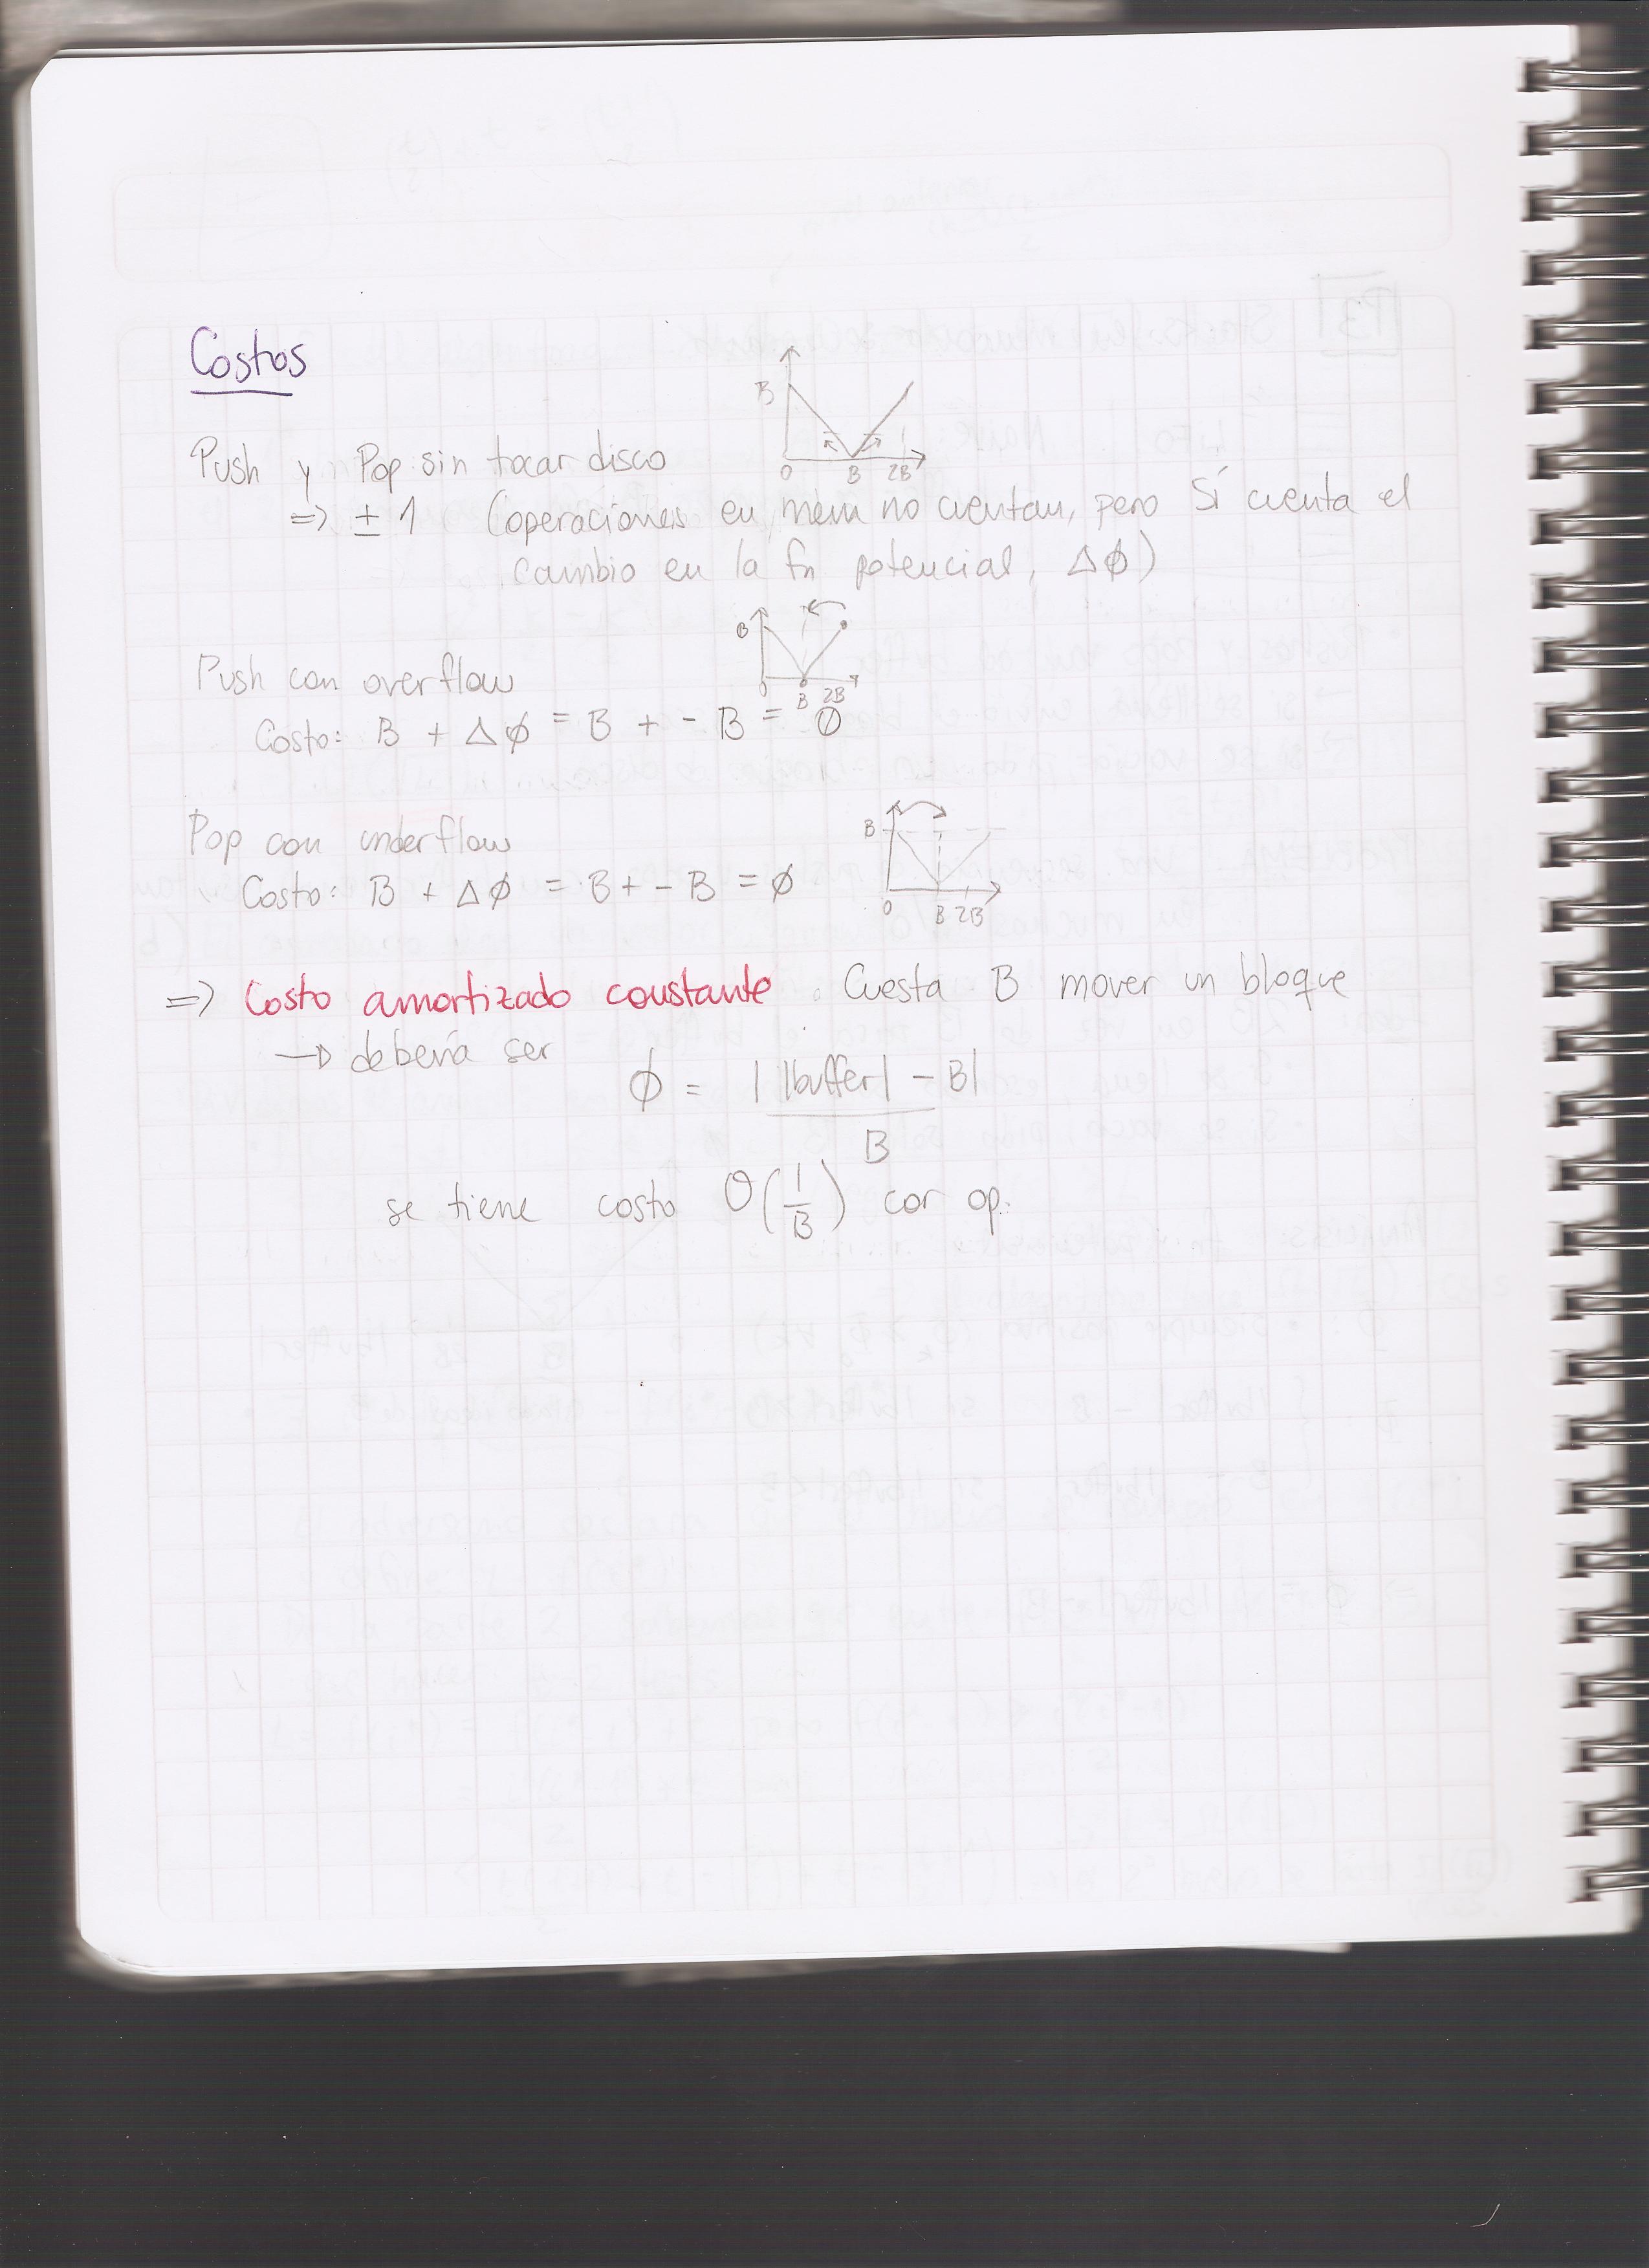 Costos
B
0 B 2B
Push y Pop sin tocar disco
=> ± 1 (operaciones en mem no cuentan, pero SÍ cuenta el
cambio en la fn potencial, Δϕ)
B
0 B 2B
Push con overflow
Costo: B + Δϕ = B + - B = 0
Pop con underflow
B
0 B 2B
Costo: B + Δϕ = B + - B = ϕ
=> Costo amortizado constante. Cuesta B mover un bloque
→ debería ser
ϕ = | |buffer| - B|
B
se tiene costo O(1/B) cor op.